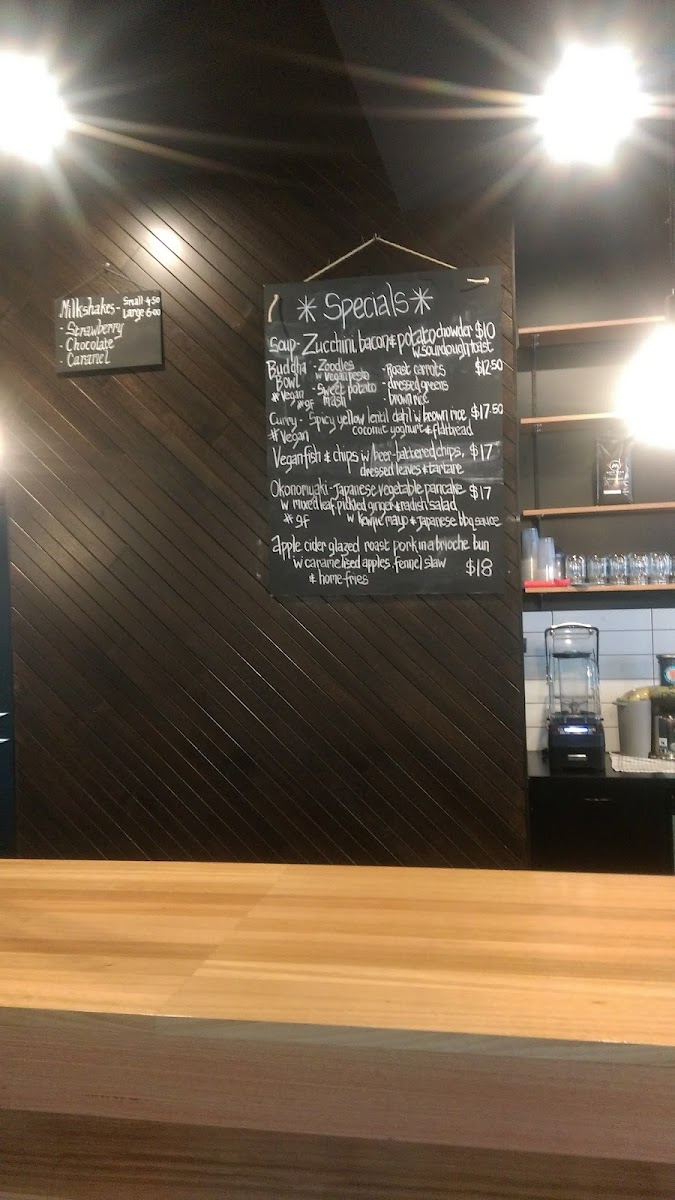 Milkshakes- Small 4·50
Large 6·00
- Strawberry
- Chocolate
- Caramel
* Specials *
Soup- Zucchini, bacon & potato chowder $10
w. sourdough toast
Buddha Bowl - Zoodles w vegan pesto - Roast carrots $12·50
# Vegan - Sweet potato mash - dressed greens
# gf - brown rice
Curry- Spicy yellow lentil dahl w brown rice $17·50
# Vegan coconut yoghurt & flatbread
Vegan fish & chips w beer-battered chips, $17
dressed leaves & tartare
Okonomiyaki-Japanese vegetable pancake $17
w mixed leaf, pickled ginger & radish salad
# gf w Kewpie mayo & Japanese bbq sauce
Apple cider glazed roast pork in a brioche bun
w caramelised apples, fennel slaw $18
& home-fries